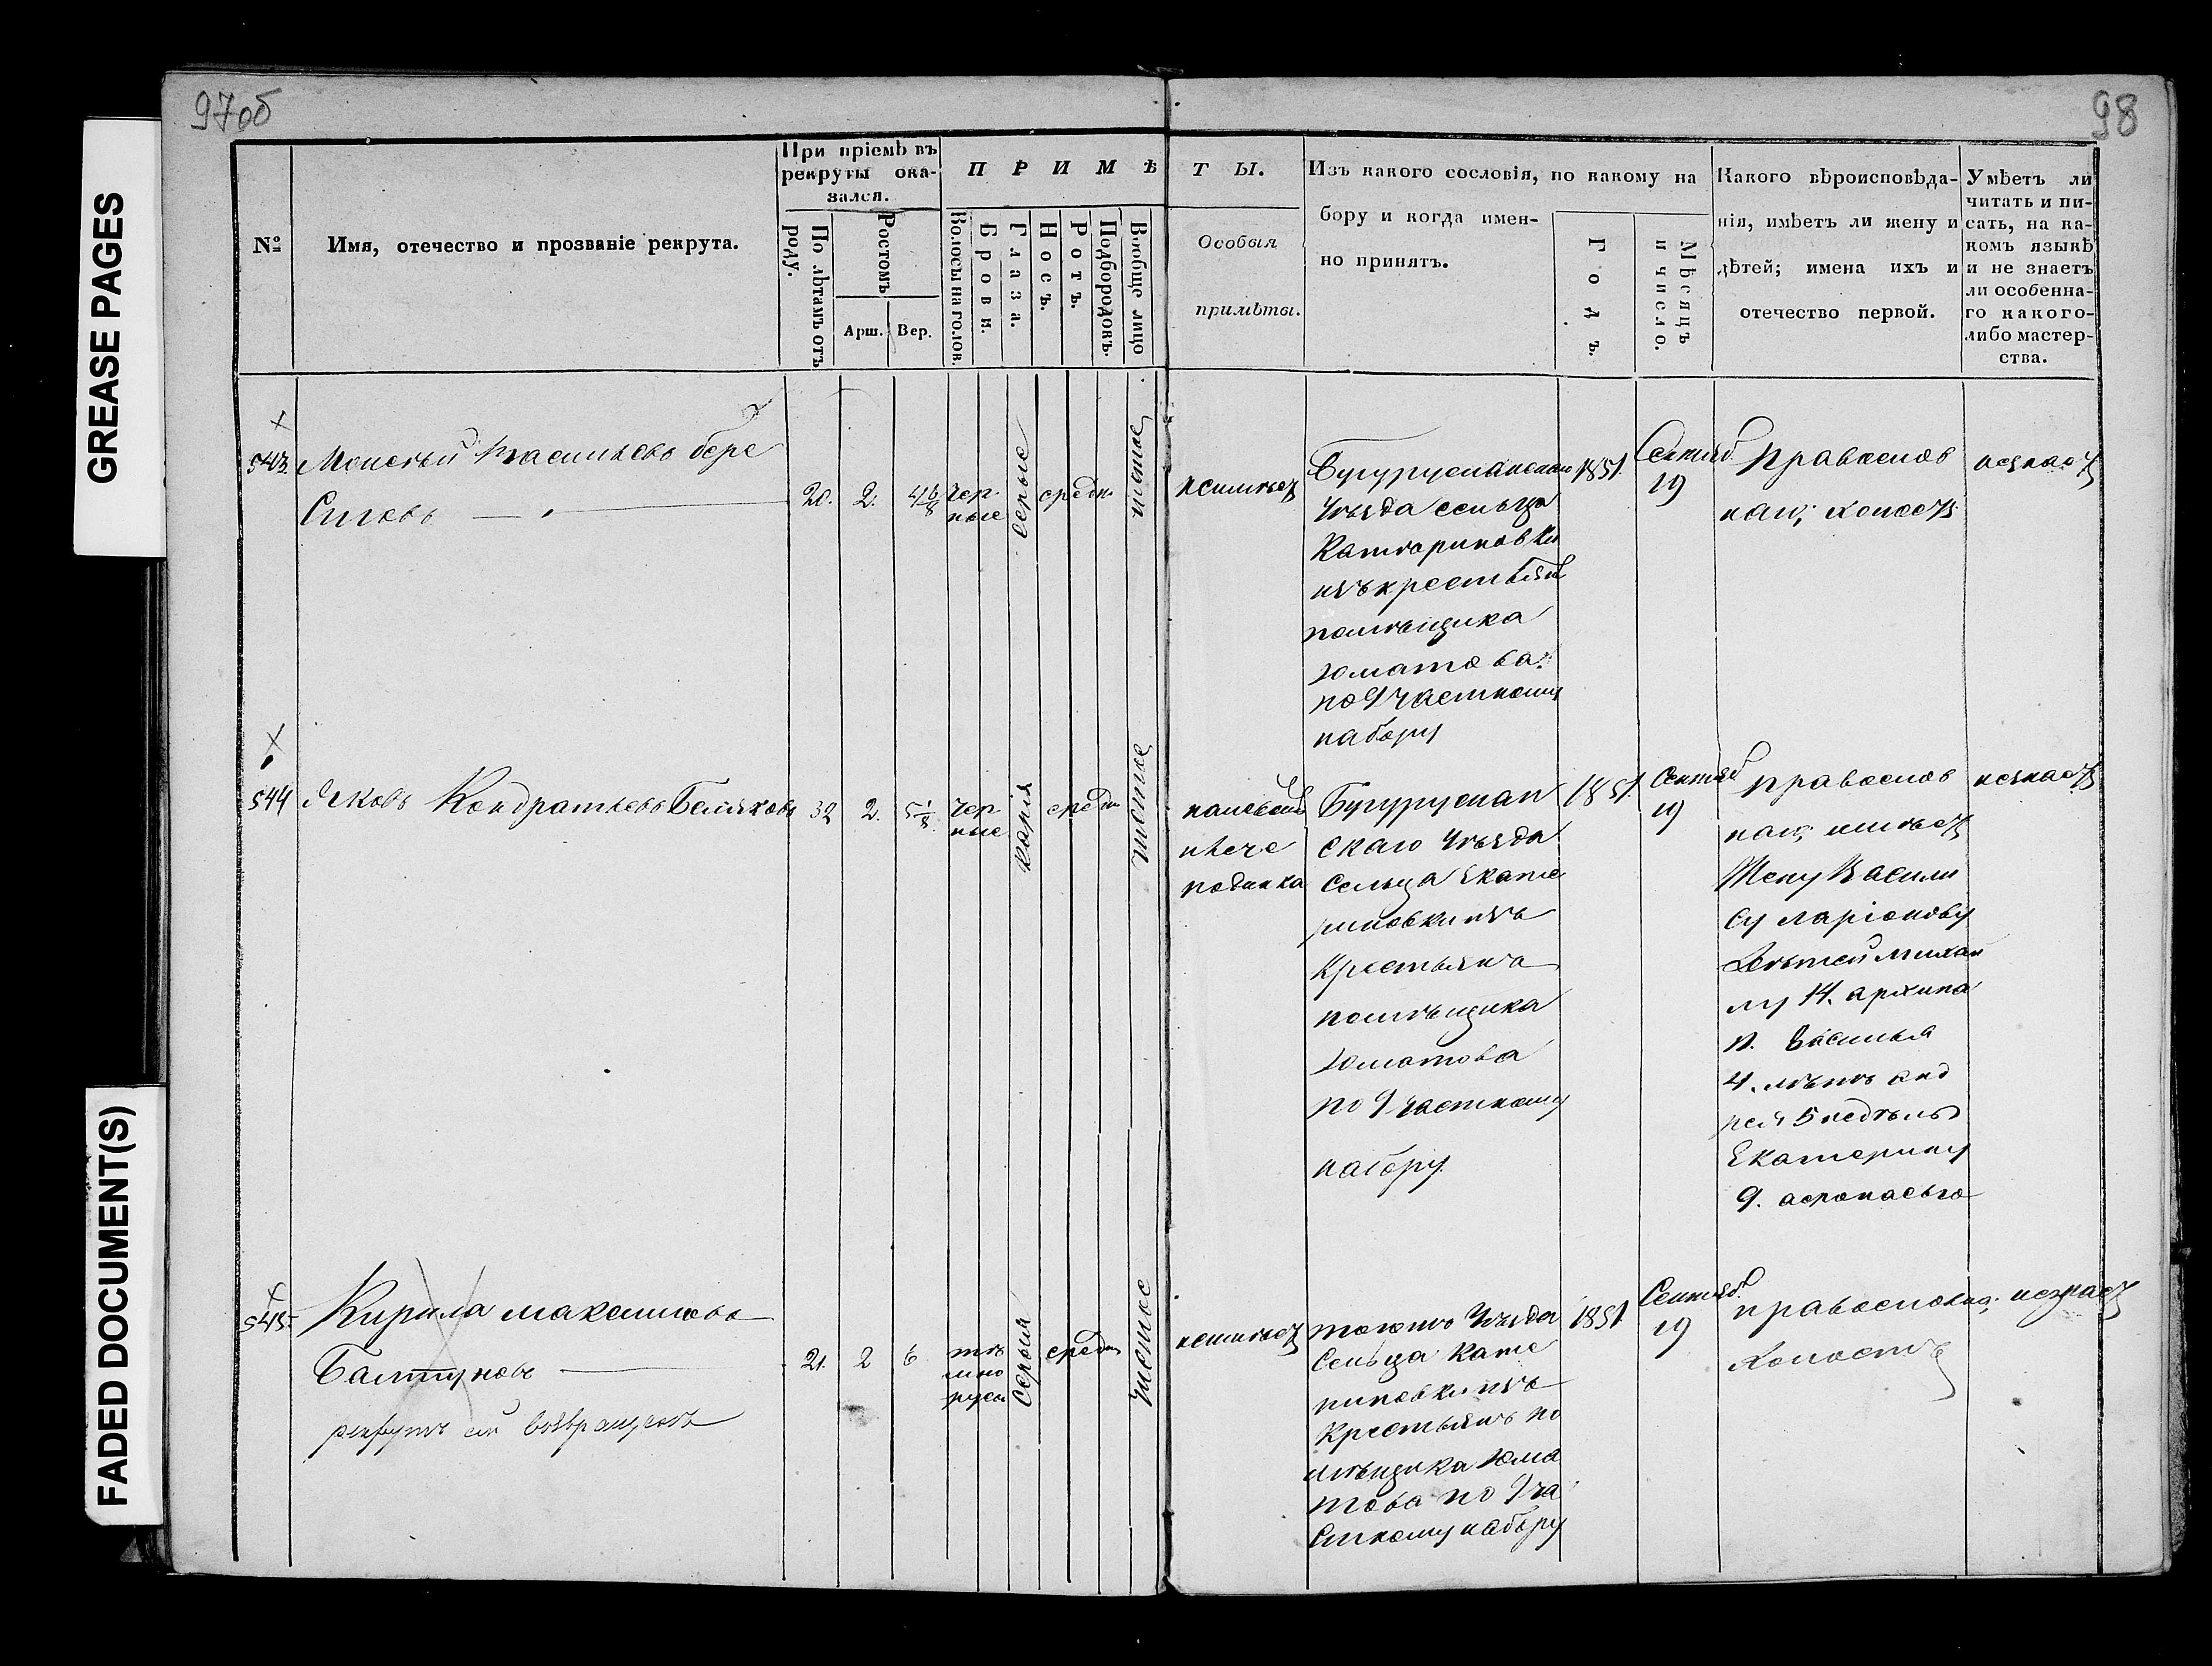 GREASE PAGES
FADED DOCUMENT(S)
97об
98
№
Имя, отечество и прозваніе рекрута.
При пріемѣ въ
рекруты ока-
зался.
По лѣтамъ отъ
роду.
Ростомъ
Арш.
Вер.
ПРИМѢТЫ.
Волосы на голов.
Брови.
Глаза.
Носъ.
Ротъ.
Подбородокъ.
Вообще лицо
Особыя
примѣты.
Изъ какого сословія, по какому на
бору и когда имен-
но принятъ.
Годъ.
Мѣсяцъ
и число.
Какого вѣроисповѣда-
нія, имѣетъ ли жену и
дѣтей; имена ихъ и
отечество первой.
Умѣетъ ли
читать и пи-
сать, на ка-
комъ языкѣ
и не знаетъ
ли особенна-
го какого-
либо мастер-
ства.
543
20.
2.
4 6/8
чер-
ные
серые
средн.
неимеет
Бугурусланскаго
Уѣзда сельца
Катериновки
изъ крестьян
помѣщика
Юматова.
по 9 частному
набору
1851
Сентяб.
19
православ
наго; холост
незнает
544
Яковъ Кондратьевъ Беляковъ
32
2.
5 1/8
чер
ные
карія
средн
налевом
плече
родинка
Бугуруслан
скаго Уѣзда
Сельца Екате
риновки изъ
Крестьянъ
помѣщика
Юматова
по 9 частному
набору
1851
Сентяб
19
православ
наго; имѣет
Жену Васили
су ларіонову
Детей михаи
лу 14. архипа
11. Василья
4. лѣтъ анд
рей 5 недѣль
Екатерину
9.
незнает
545.
Кирила максимовъ
Балтуновъ
рекрутъ сей возвращенъ
21.
2
6
тѣ
мно
русы
серыя
средн
неимѣет
тогожъ Уѣзда
Сельца Кате
риновки изъ
Крестьянъ по
мѣщика Юма
това по 9 ча
стному набору
1851
Сентяб.
19
православна;
Холостъ
незнает